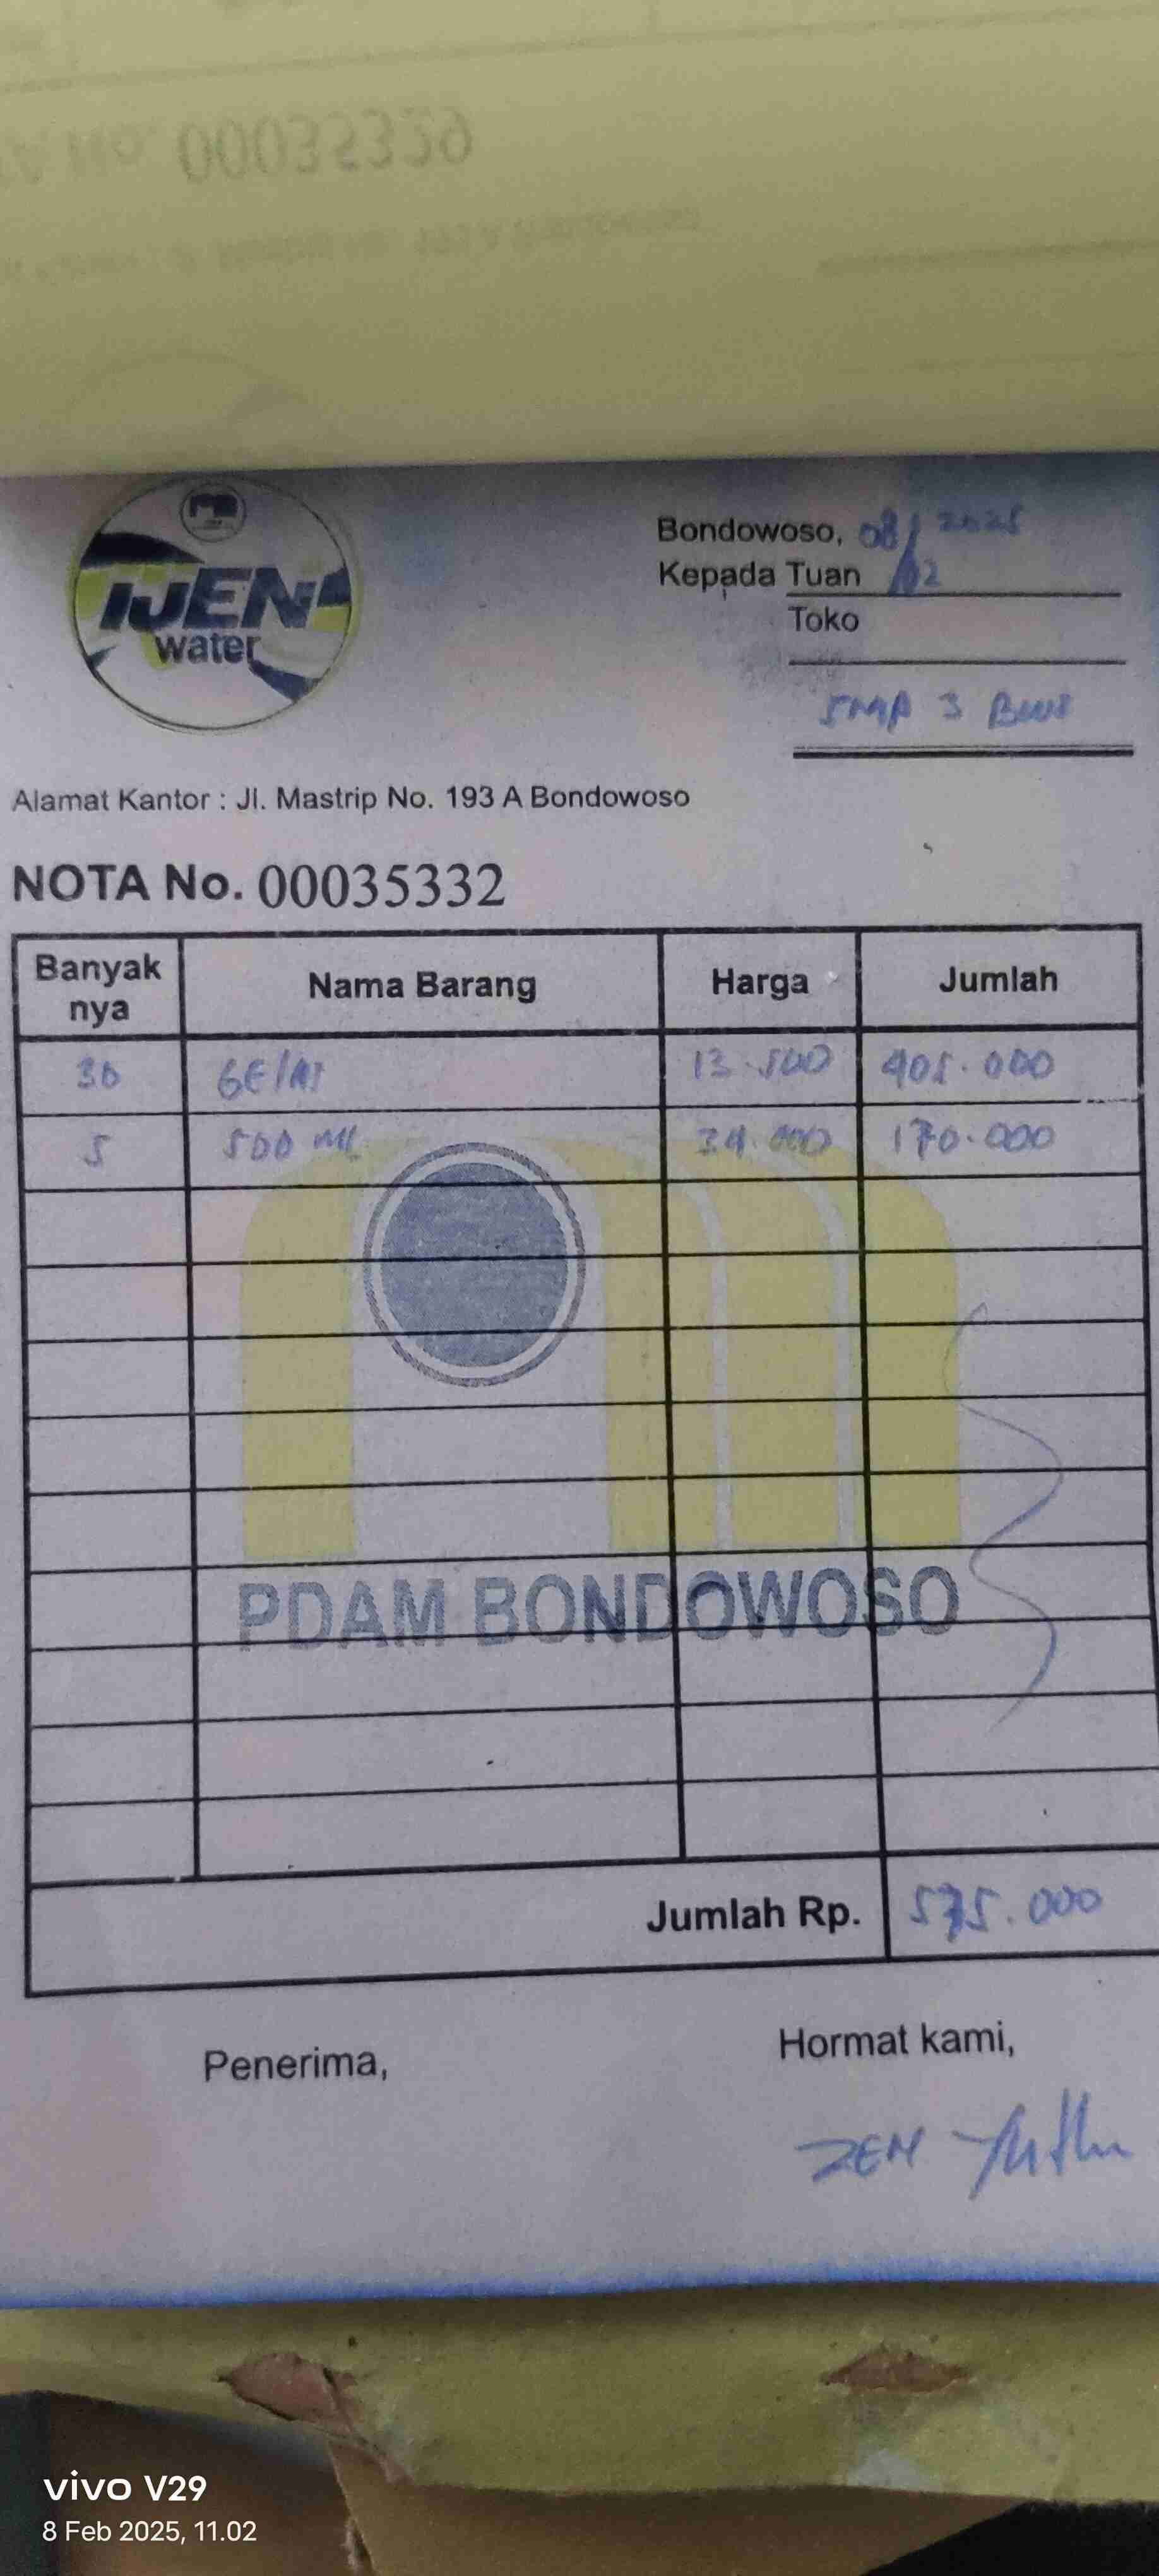 No. 00035329
IJEN
water
Bondowoso, 08/02 2025
Kepada Tuan
Toko
SMP 3 BWS
Alamat Kantor : Jl. Mastrip No. 193 A Bondowoso
NOTA No. 00035332
Banyak nya Nama Barang Harga Jumlah
30 GELAS 13.500 405.000
5 500 ML 34.000 170.000
PDAM BONDOWOSO
Jumlah Rp. 575.000
Penerima, Hormat kami,
ZEN
vivo V29
8 Feb 2025, 11.02